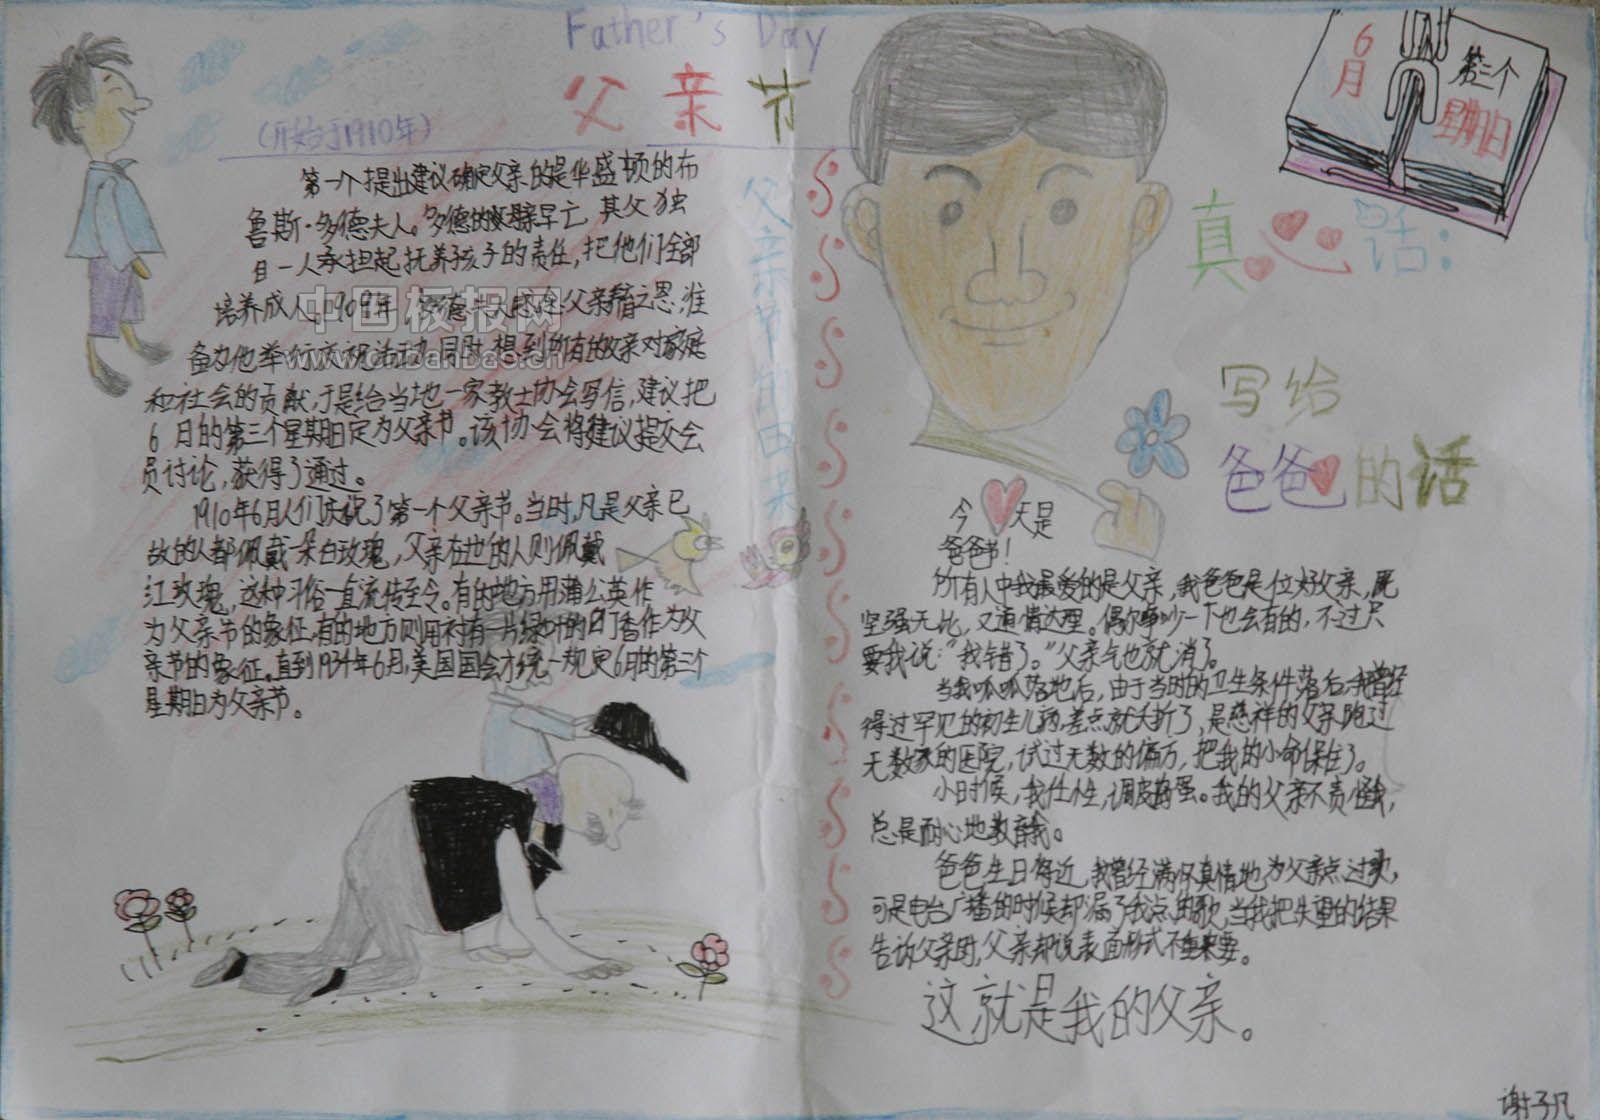 Father's Day
父亲节
(开始于1910年)
第一个提出建议确定父亲的是华盛顿的布
鲁斯·多德夫人。多德的母亲早亡,其父独
自一人承担起抚养孩子的责任,把他们全部
培养成人,1909年 多德夫人感念父亲养育之恩,准
备为他举行庆祝活动,同时,想到所有的父亲对家庭
和社会的贡献,于是给当地一家教士协会写信,建议把
6 月的第三个星期日定为父亲节。该协会将建议提交会
员讨论,获得了通过。
1910年6月人们庆祝了第一个父亲节。当时,凡是父亲已
故的人都佩戴一朵白玫瑰,父亲在世的人则佩戴
红玫瑰,这种习俗一直流传至今。有的地方用蒲公英作
为父亲节的象征,有的地方则用衬有一片绿叶的白丁香作为父
亲节的象征。直到1934年6月,美国国会才统一规定6月的第三个
星期日为父亲节。
中国板报网
父亲节的由来
6月
第三个
星期日
真心话:
写给
爸爸的话
今天是
爸爸节!
所有人中我最爱的是父亲,我爸爸是位好父亲,既
坚强无比,又通情达理。偶尔争吵一下也会有的,不过只
要我说:“我错了。”父亲气也就消了。
当我呱呱落地后,由于当时的卫生条件落后,我曾经
得过罕见的初生儿病,差点就夭折了,是慈祥的父亲跑过
无数家的医院,试过无数的偏方,把我的小命保住了。
小时候,我任性,调皮,倔强。我的父亲不责怪我,
总是耐心地教育我。
爸爸生日将近,我曾经满怀真情地为父亲点过歌,
可是电台广播的时候却漏了我点的歌,当我把失望的结果
告诉父亲时,父亲却说表面形式不重要。
这就是我的父亲。
谢子凡